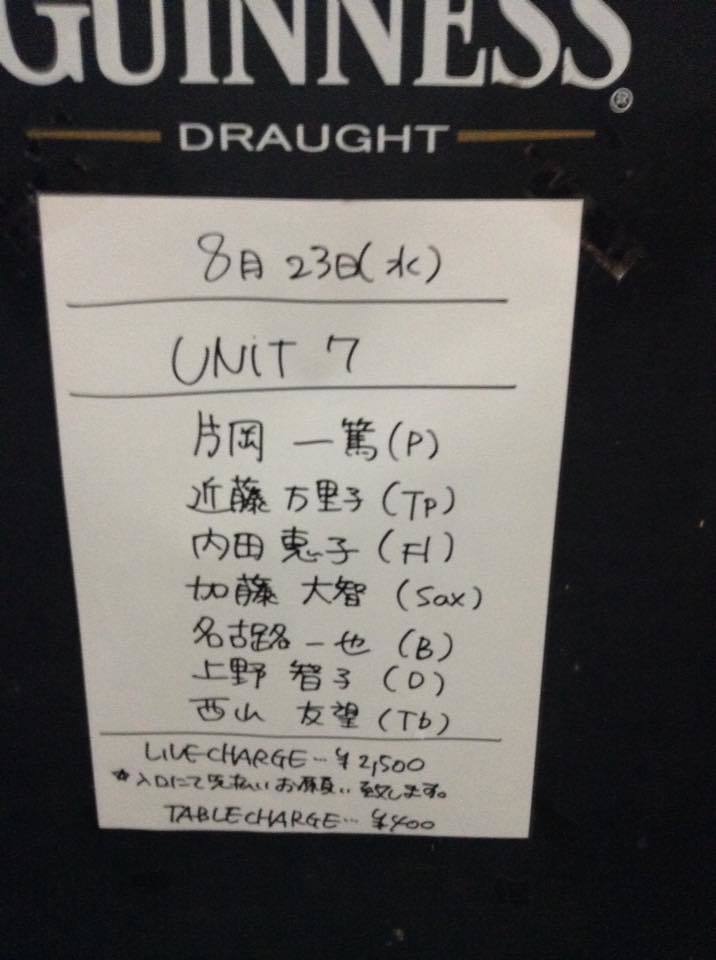 GUINNESS®
DRAUGHT
8月23日(水)
UNiT 7
片岡 一篤(P)
近藤 万里子(Tp)
内田 恵子(Fl)
加藤 大智(Sax)
名古路 一也(B)
上野 智子(D)
西山 友望(Tb)
LIVECHARGE…¥2,500
☆入口にて先払いお願い致します。
TABLECHARGE…¥400